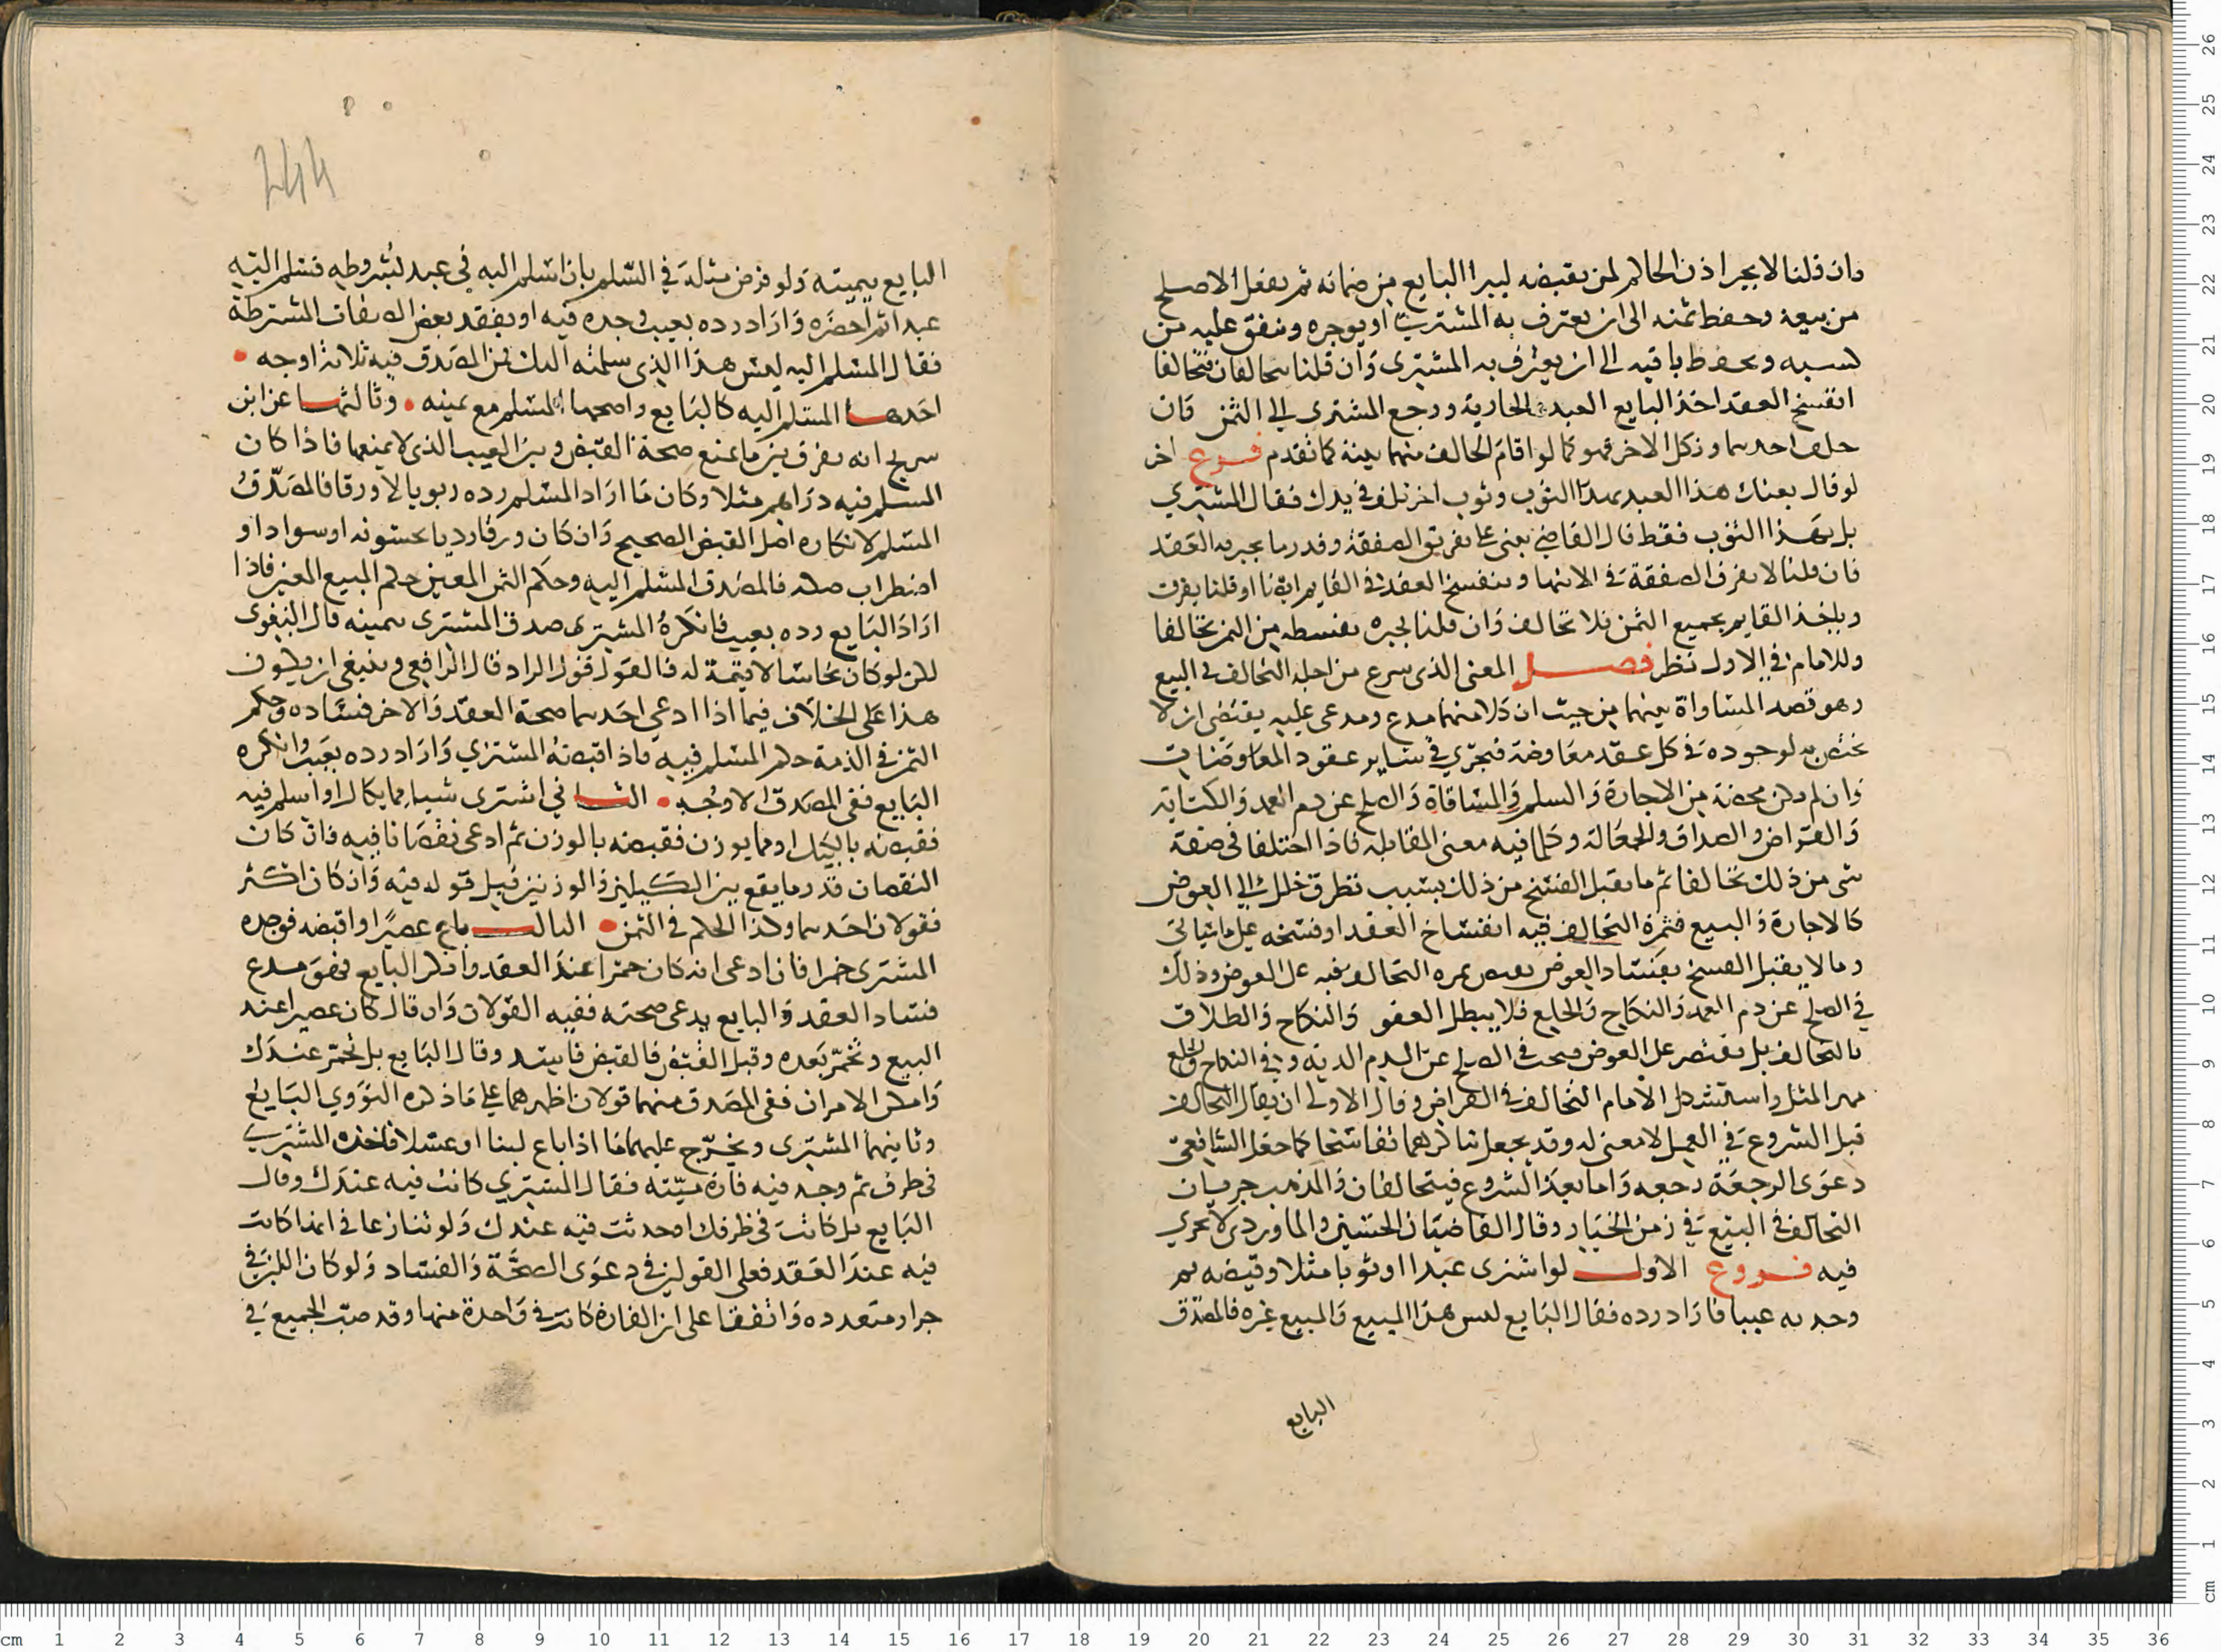 وان قلنا لا يجبر اذن الحاكم لمن يقبضه ليبرا البايع من ضمانه ثم يفعل الاصلح
من بيعه وحفظ ثمنه الى ان يعترف به المشتري او يوجره وينفق عليه من
كسبه ويحفظ باقيه الى ان يعترف به المشتري وان قلنا يتحالفان فتحالفا
انفسخ العقد اخذ البايع العبد والجارية ورجع المشتري الى الثمن فان
حلف احدهما ونكل الاخر فهو كما لو اقام الحالف منهما بينة كما تقدم فرع اخر
لو قال بعتك هذا العبد بهذا الثوب وثوب اخر تلف في يدك فقال المشتري
بل بهذا الثوب فقط قال القاضي يبنى على تفريق الصفقة وقدر ما يجبر به العقد
فان قلنا لا تفرق الصفقة في الانتها وينفسخ العقد في القايم ايضا او قلنا يفرق
وياخذ القايم بجميع الثمن فلا تحالف وان قلنا يجبره بقسطه من الثمن تحالفا
وللامام في الاول نظر فصل المعنى الذي شرع من اجله التحالف في البيع
وهو قصد المساواة بينهما من حيث ان كلا منهما مدع ومدعى عليه يقتضي ان لا
يختص به لوجوده في كل عقد معاوضة فيجري في ساير عقود المعاوضات
وان لم يكن محضة من الاجارة والسلم والمساقاة والصلح عن دم العمد والكتابة
والقراض والصداق والجعالة وكلما فيه معنى المقابلة فاذا اختلفا في صفة
شي من ذلك تحالفا ثم ما يقبل الفسخ من ذلك بسبب تطرق خلل الى العوض
كالاجارة والبيع فثمرة التحالف فيه انفساخ العقد او فسخه على ما سياتي
وما لا يقبل الفسخ بفساد العوض يعتص ثمرة التحالف فيه على العوض وذلك
في الصلح عن دم العمد والنكاح والخلع فلا يبطل العفو والنكاح والطلاق
بالتحالف بل يقتصر على العوض فيجب في الصلح عن الدم الدية وفي النكاح والخلع
مهر المثل واستشكل الامام التحالف في القراض وقال الاولى ان يقال التحالف
قبل الشروع في العمل لا معنى له وقد يجعل تناكرهما تفاسخا كما جعل الشافعي
دعوى الرجعة رجعه واما بعد الشروع فيتحالفان والمذهب جريان
التحالف في البيع في زمن الخيار وقال القاضيان الحسين والماوردي لا يجري
فيه فروع الاول لو اشترى عبدا او ثوبا مثلا وقبضه ثم
وجد به عيبا فاراد رده فقال البايع ليس هذا المبيع والمبيع غيره فالمصدق
البايع
244
البايع بيمينه ولو فرض مثله في السلم بان اسلم اليه في عبد بشروطه فسلم اليه
عبدا ثم احضره واراد رده بعيب وجده فيه او بفقد بعض الصفات المشترطة
فقال المسلم اليه ليس هذا الذي سلمته اليك فمن المصدق فيه ثلاثة اوجه
احدها المسلم اليه كالبايع واصحها المسلم مع يمينه وثالثها عن ابن
سريج انه يفرق بين ما يمنع صحة القبض وبين العيب الذي لا يمنعها فاذا كان
المسلم فيه دراهم مثلا وكان ما اراد المسلم رده زيوفا لا ورقا فالمصدق
المسلم لانكاره اصل القبض الصحيح وان كان ورقا رديا بخشونة او سواد او
اضطراب سكة فالمصدق المسلم اليه وحكم الثمن المعين حكم المبيع المعين فاذا
اراد البايع رده بعيب فانكره المشتري صدق المشتري بيمينه قال البغوي
لكن لو كان نحاسا لا قيمة له فالقول قول الراد قال الرافعي وينبغي ان يكون
هذا على الخلاف فيما اذا ادعى احدهما صحة العقد والاخر فساده وحكم
الثمن في الذمة حكم المسلم فيه فاذا قبضه المشتري واراد رده بعيب وانكره
البايع ففي المصدق الاوجه الثاني اشترى شيا مما يكال او اسلم فيه
فقبضه بالكيل او مما يوزن فقبضه بالوزن ثم ادعى نقصانا فيه فان كان
النقصان قدر ما يقع بين الكيلين والوزنين قبل قوله فيه وان كان اكثر
فقولان احدهما وكذا الحكم في الثمن الثالث باع عصيرا واقبضه فوجده
المشتري خمرا فان ادعى انه كان خمرا عند العقد وانكر البايع فهو مدع
فساد العقد والبايع يدعي صحته ففيه القولان وان قال كان عصيرا عند
البيع وتخمر بعده وقبل القبض فالقبض فاسد وقال البايع بل تخمر عندك
وامكن الامران ففي المصدق منهما قولان اظهرهما على ما ذكره النووي البايع
وثانيهما المشتري ويخرج عليهما ما اذا باع لبنا او عسلا فاخذه المشتري
في ظرف ثم وجد فيه فارة ميتة فقال المشتري كانت فيه عندك وقال
البايع بل كانت في ظرفك او حدثت فيه عندك ولو تنازعا في انها كانت
فيه عند العقد فعلى القولين في دعوى الصحة والفساد ولو كان اللبن في
جرار متعدده واتفقا على ان الفارة كانت في واحدة منها وقد صب الجميع في